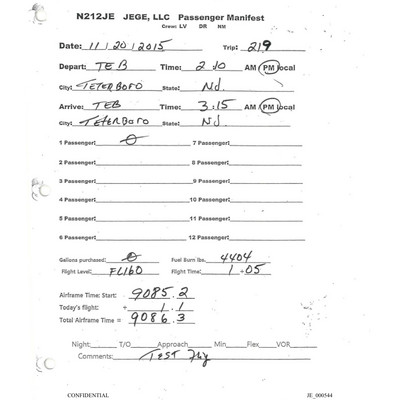 N212JE JEGE, LLC Passenger Manifest
Crew: LV DR NM
Date: 11/20/2015 Trip: 219
Depart: TEB Time: 2:10 AM PM local
City: TETERBORO State: NJ.
Arrive: TEB Time: 3:15 AM PM local
City: TETERBORO State: NJ
1 Passenger: 0 7 Passenger:
2 Passenger: 8 Passenger:
3 Passenger: 9 Passenger:
4 Passenger: 10 Passenger:
5 Passenger: 11 Passenger:
6 Passenger: 12 Passenger:
Gallons purchased: 0 Fuel Burn lbs. 4404
Flight Level: FL160 Flight Time: 1+05
Airframe Time: Start: 9085.2
Today's flight: + 1.1
Total Airframe Time = 9086.3
Night: T/O Approach Min Flex VOR
Comments: TEST
CONFIDENTIAL JE_000544